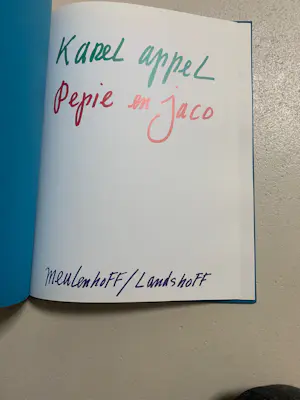 Karel appel
Pepie en jaco
meulenhoff/Landshoff